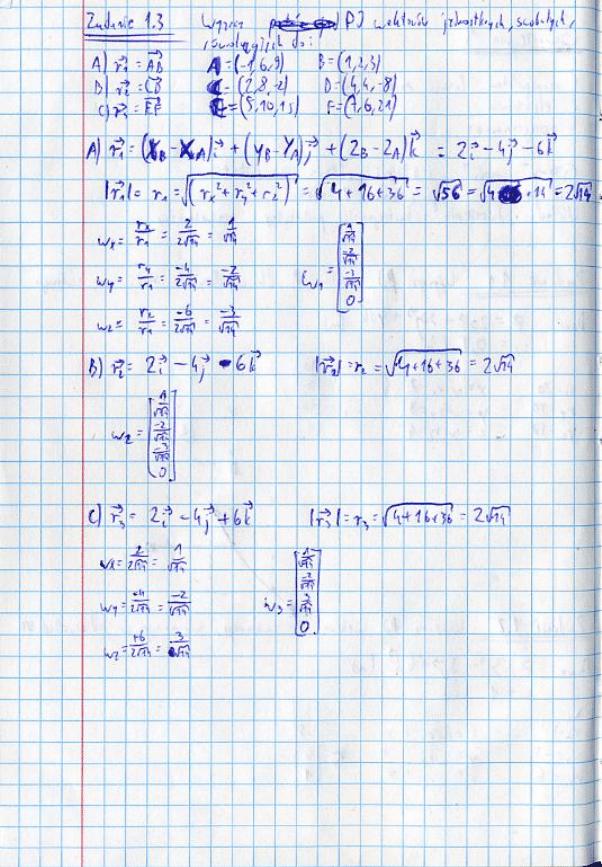 Zadanie 1.3 Wyznacz PJ wektorów jednostkowych, swobodnych,
A) r₁⃗ = AB⃗ A = (-1,6,9) B = (1,2,3)
B) r₂⃗ = CD⃗ C = (2,8,-2) D = (4,4,-8)
C) r₃⃗ = EF⃗ E = (5,10,15) F = (7,6,21)
A) r₁⃗ = (X_B - X_A)i⃗ + (Y_B - Y_A)j⃗ + (Z_B - Z_A)k⃗ = 2i⃗ - 4j⃗ - 6k⃗
|r₁⃗| = r₁ = √(r_x² + r_y² + r_z²) = √4 + 16 + 36 = √56 = √4 · 14 = 2√14
w_x = r_x/r₁ = 2/2√14 = 1/√14
w_y = r_y/r₁ = -4/2√14 = -2/√14
w₁ = [1/√14 -2/√14 -3/√14 0]
w_z = r_z/r₁ = -6/2√14 = -3/√14
B) r₂⃗ = 2i⃗ - 4j⃗ - 6k⃗ |r₂⃗| = r₂ = √4 + 16 + 36 = 2√14
w₂ = [1/√14 -2/√14 -3/√14 0]
C) r₃⃗ = 2i⃗ - 4j⃗ + 6k⃗ |r₃⃗| = r₃ = √4 + 16 + 36 = 2√14
w_x = 2/2√14 = 1/√14
w_y = -4/2√14 = -2/√14 w₃ = [1/√14 -2/√14 3/√14 0]
w_z = +6/2√14 = 3/√14